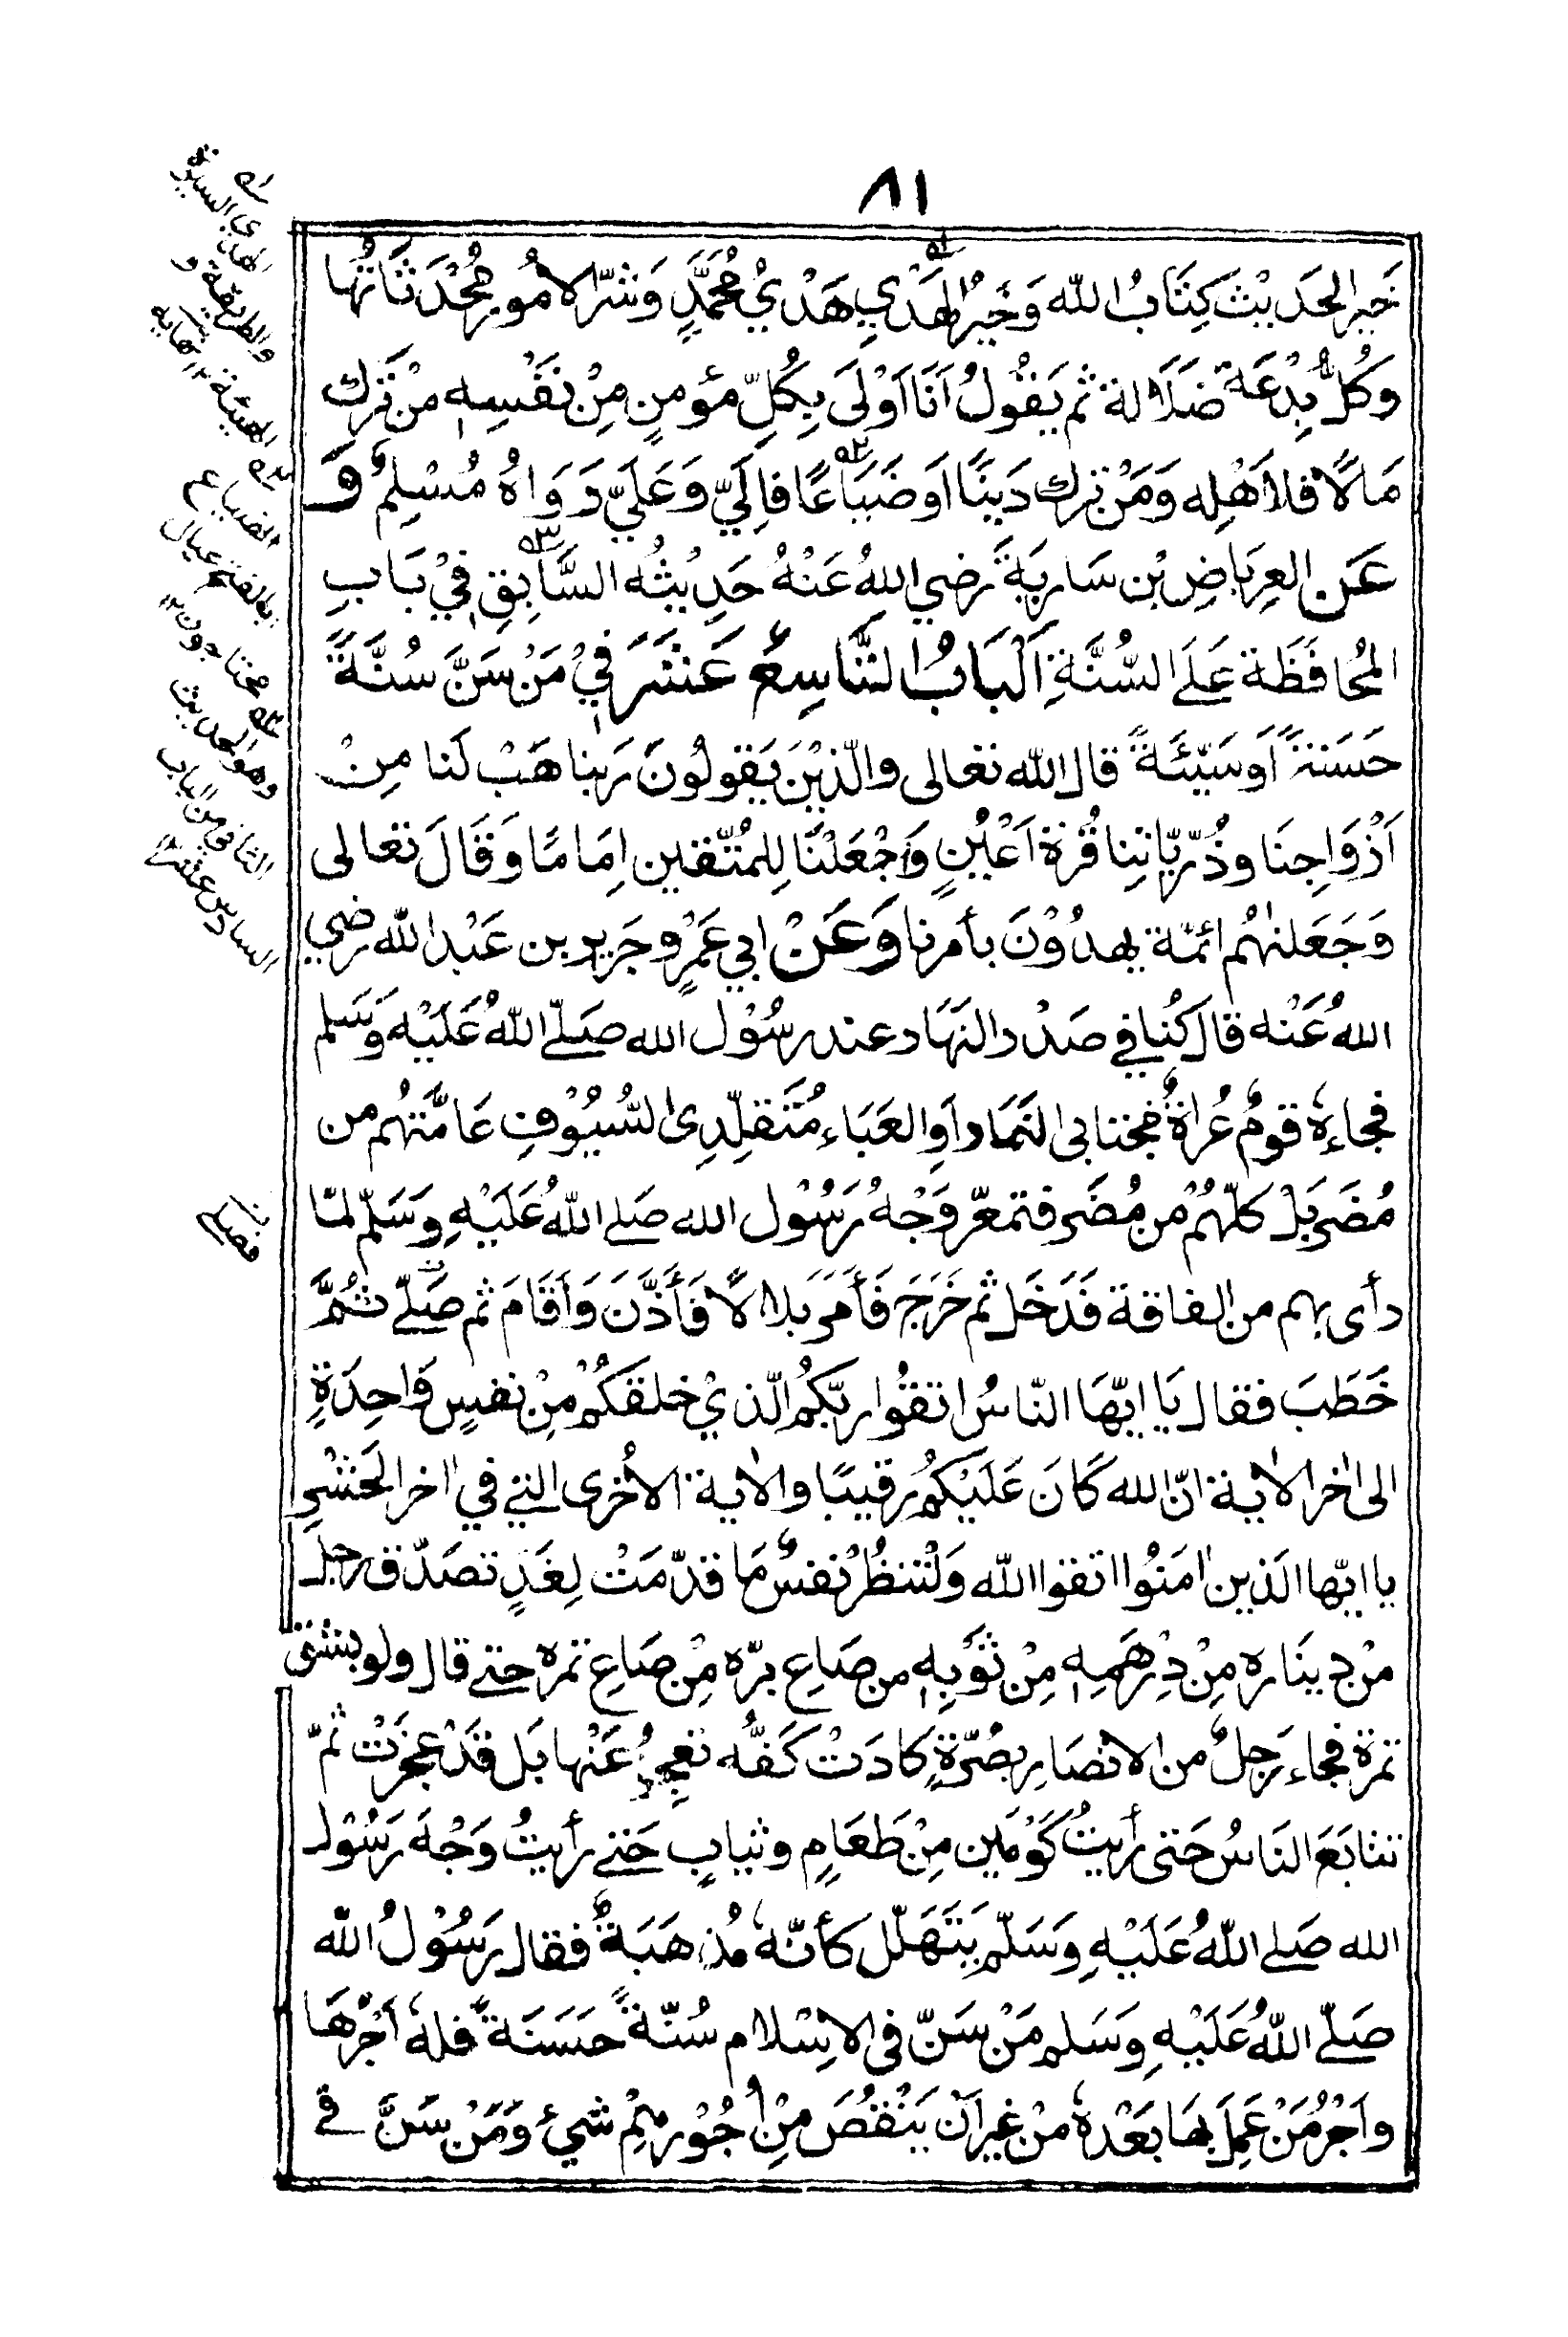 ٨١
خَيرالحَديْث كِتَابُ الله وَخَيْرُ الهَدْيِ هَدْيُ مُحَمَّدٍ وَشَرّالامُور مُحْدَثَاتُهَا
وَكُلُّ بِدْعَة ضَلَالة ثم يَقُولُ اَنَا اَوْلَى بِكُلِّ مؤمنٍ مِنْ نَفْسِهٖ مَنْ تَرَكَ
مَالًا فلاَهْلِه وَمَنْ تركَ دَيْنًا اَوضَيَاعًا فَاِلَيَّ وَعَلَيَّ رَوَاهُ مُسْلِمٌ وَ
عَن العِرباضِ بْن سَارِيَةَ رضي اللهُ عَنْهُ حَدِيْثُه السَّابِقِ فِيْ بَابِ
المُحافَظَة عَلَى السُّنَّةِ اَلْبَابُ التَّاسِعُ عَشَرَ فِيْ مَنْ سَنَّ سُنَّةً
حَسَنَةً اَوسَيّئَةً قال الله تعالى والّذيْنَ يَقولُونَ رَبنا هَبْ لَنا مِنْ
اَزْوَاجِنَا وذُرّيّاتِنا قُرّة اَعْيُنٍ وَاجْعَلْنَا لِلمُتّقين اِمَامًا وَقَالَ تعالى
وَجَعَلنٰهُم ائمّة يهدُوْنَ بأمرنا وَعَنْ ابي عَمْرٍو جَرِير بن عَبْد الله رضي
اللهُ عَنْه قال كُنا في صَدْر النَهَار عند رسُوْل الله صَلّى اللهُ عَلَيْه وَسَلم
فجاءهٗ قومٌ عُراةٌ مجتابى النَمَار اَوِ العَبَاء مُتَقلِّدِى السُّيُوْفِ عَامَّتهُم من
مُضَر بَلْ كلّهُمْ من مُضَر فتمعّر وَجْهُ رَسُوْل الله صَلى اللهُ عَلَيْهِ وَسَلّم لمّا
رأى بهم من الفاقة فَدَخَل ثم خَرَجَ فَأَمَرَ بَلالًا فَأَذَّنَ وَأقَامَ ثم صَلّى ثمَّ
خَطَبَ فقال يَا ايّهَا النّاسُ اتقُوا ربّكُم الّذيْ خلقكُمْ مِنْ نفسٍ وَاحِدَةٍ
الى اٰخر الاٰية انّ الله كَانَ عَلَيْكُمْ رقيبًا والاٰية الاُخرى التي في اٰخر الحَشْرِ
يا ايّها الذين اٰمَنُوا اتقوا الله وَلْتَنظُرْ نفسٌ مَا قدّمَتْ لِغَدٍ تصَدّق رجل
من دينَاره مِنْ دِرْهَمِهٖ مِنْ ثَوْبِهٖ من صَاعِ برّه مِنْ صَاعِ تمره حتى قال ولوبشق
تمرة فجاء رَجلٌ من الانصَار بصُرّةٍ كادَتْ كَفُّه تعجِزُ عَنْها بَل قَدْ عجزَتْ ثمّ
تتابَعَ النَاسُ حَتى رأيتُ كَوْمَين مِنْ طَعَامٍ وثيابٍ حَتى رأيتُ وَجْهَ رَسُوْل
الله صَلى اللهُ عَلَيْهِ وَسَلّم يَتَهَلّل كأنّهٗ مُذهَبَةٌ فقال رَسُوْلُ الله
صَلّى اللهُ عَلَيْهِ وَسَلم مَنْ سَنّ فى الاِسْلام سُنّةً حَسَنَةً فلهٗ اَجْرُهَا
واَجْرُ مَنْ عَمِلَ بهَا بَعْدهٗ مِنْ غيراَن يَنْقُصَ مِنْ اُجُوْرهِمْ شَيْئ وَمَنْ سَنَّ في
الهدي السيرة
والطريقة و
الهيئة ١٢ نهايه
الضياع
بالفتح عيال
محتاجون ١٢
وهوالحديث
الثانى من الباب
السادس عشر